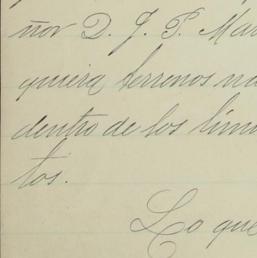 ñor D. J. P. Mar
quiera terrenos na
dentro de los lími
tos.
Lo que